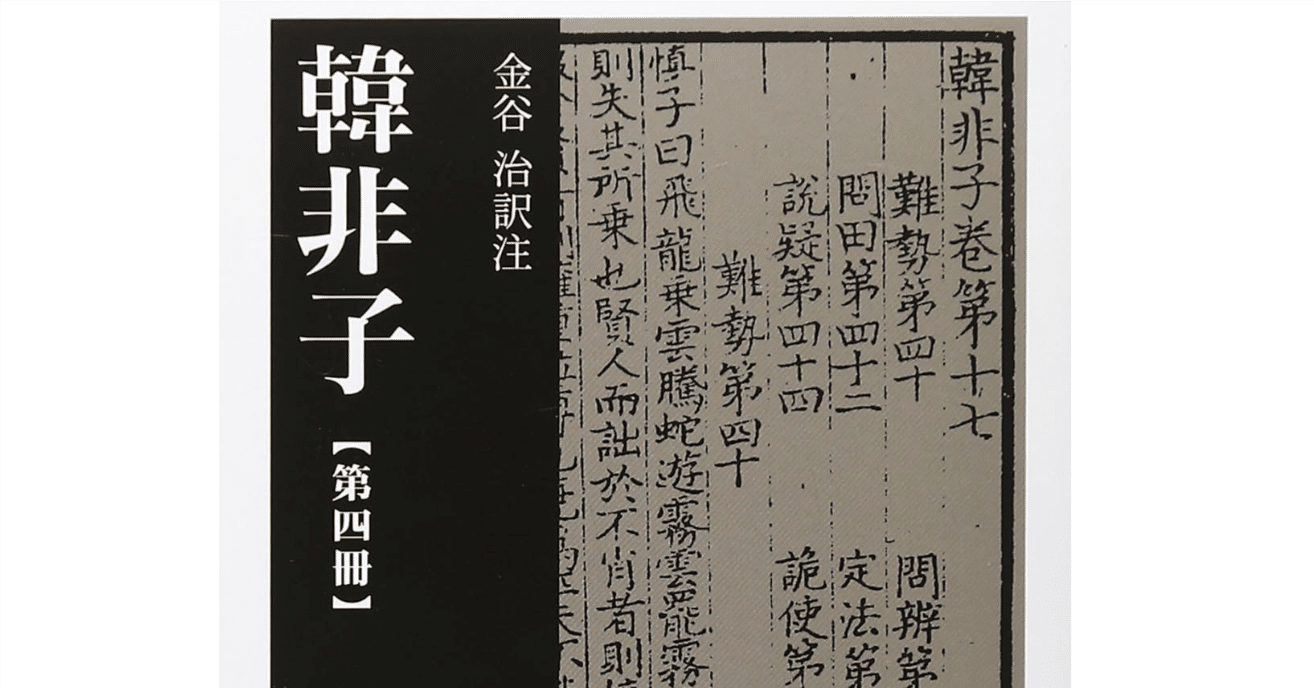 韓非子
【第四冊】
金谷 治訳注
韓非子卷第十七
難勢第四十 問辨第
問田第四十二 定法第
說疑第四十四 詭使第
難勢第四十
慎子曰飛龍乗雲騰蛇遊霧雲罷霧
則失其所乗也賢人而詘於不肖者則